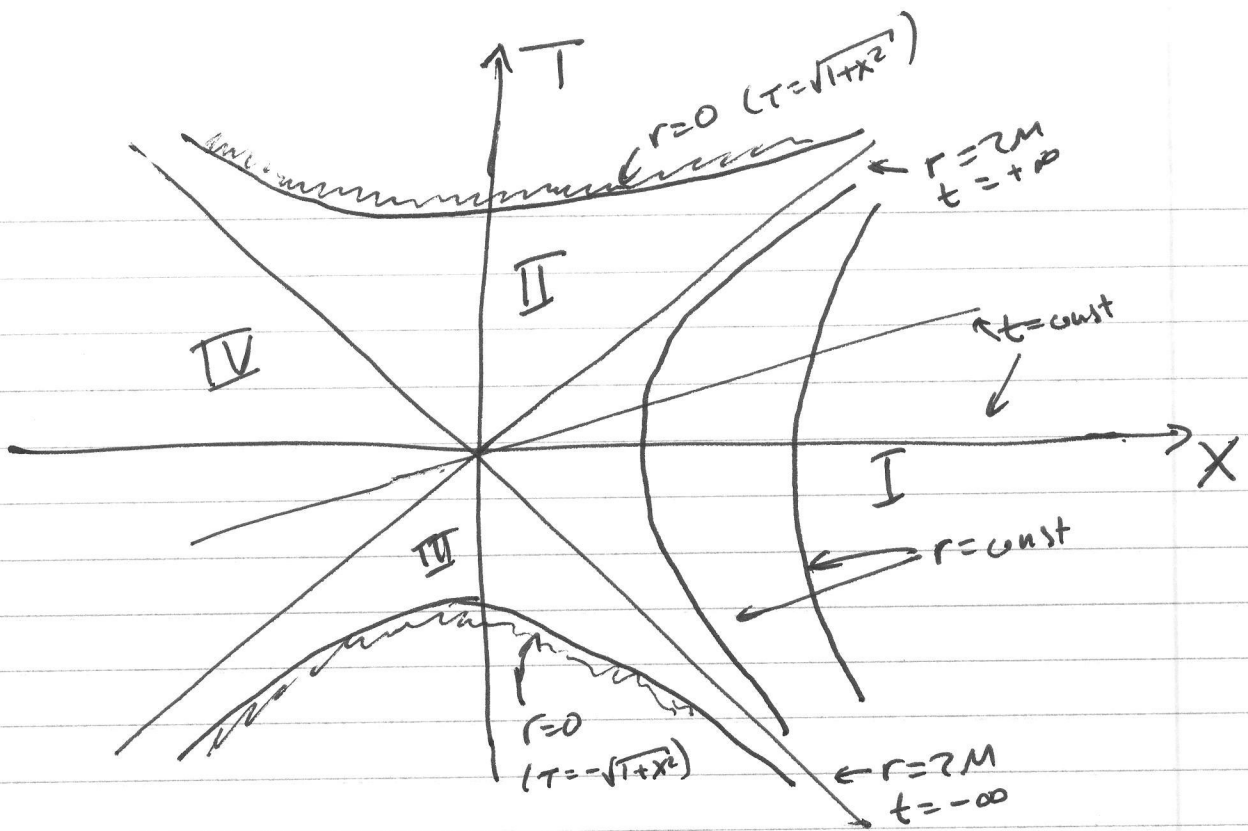 T
r=0 (T=√1+x²)
r=2M
t=+∞
II
IV
t=const
X
I
III
r=const
r=0
(T=-√1+x²)
r=2M
t=-∞